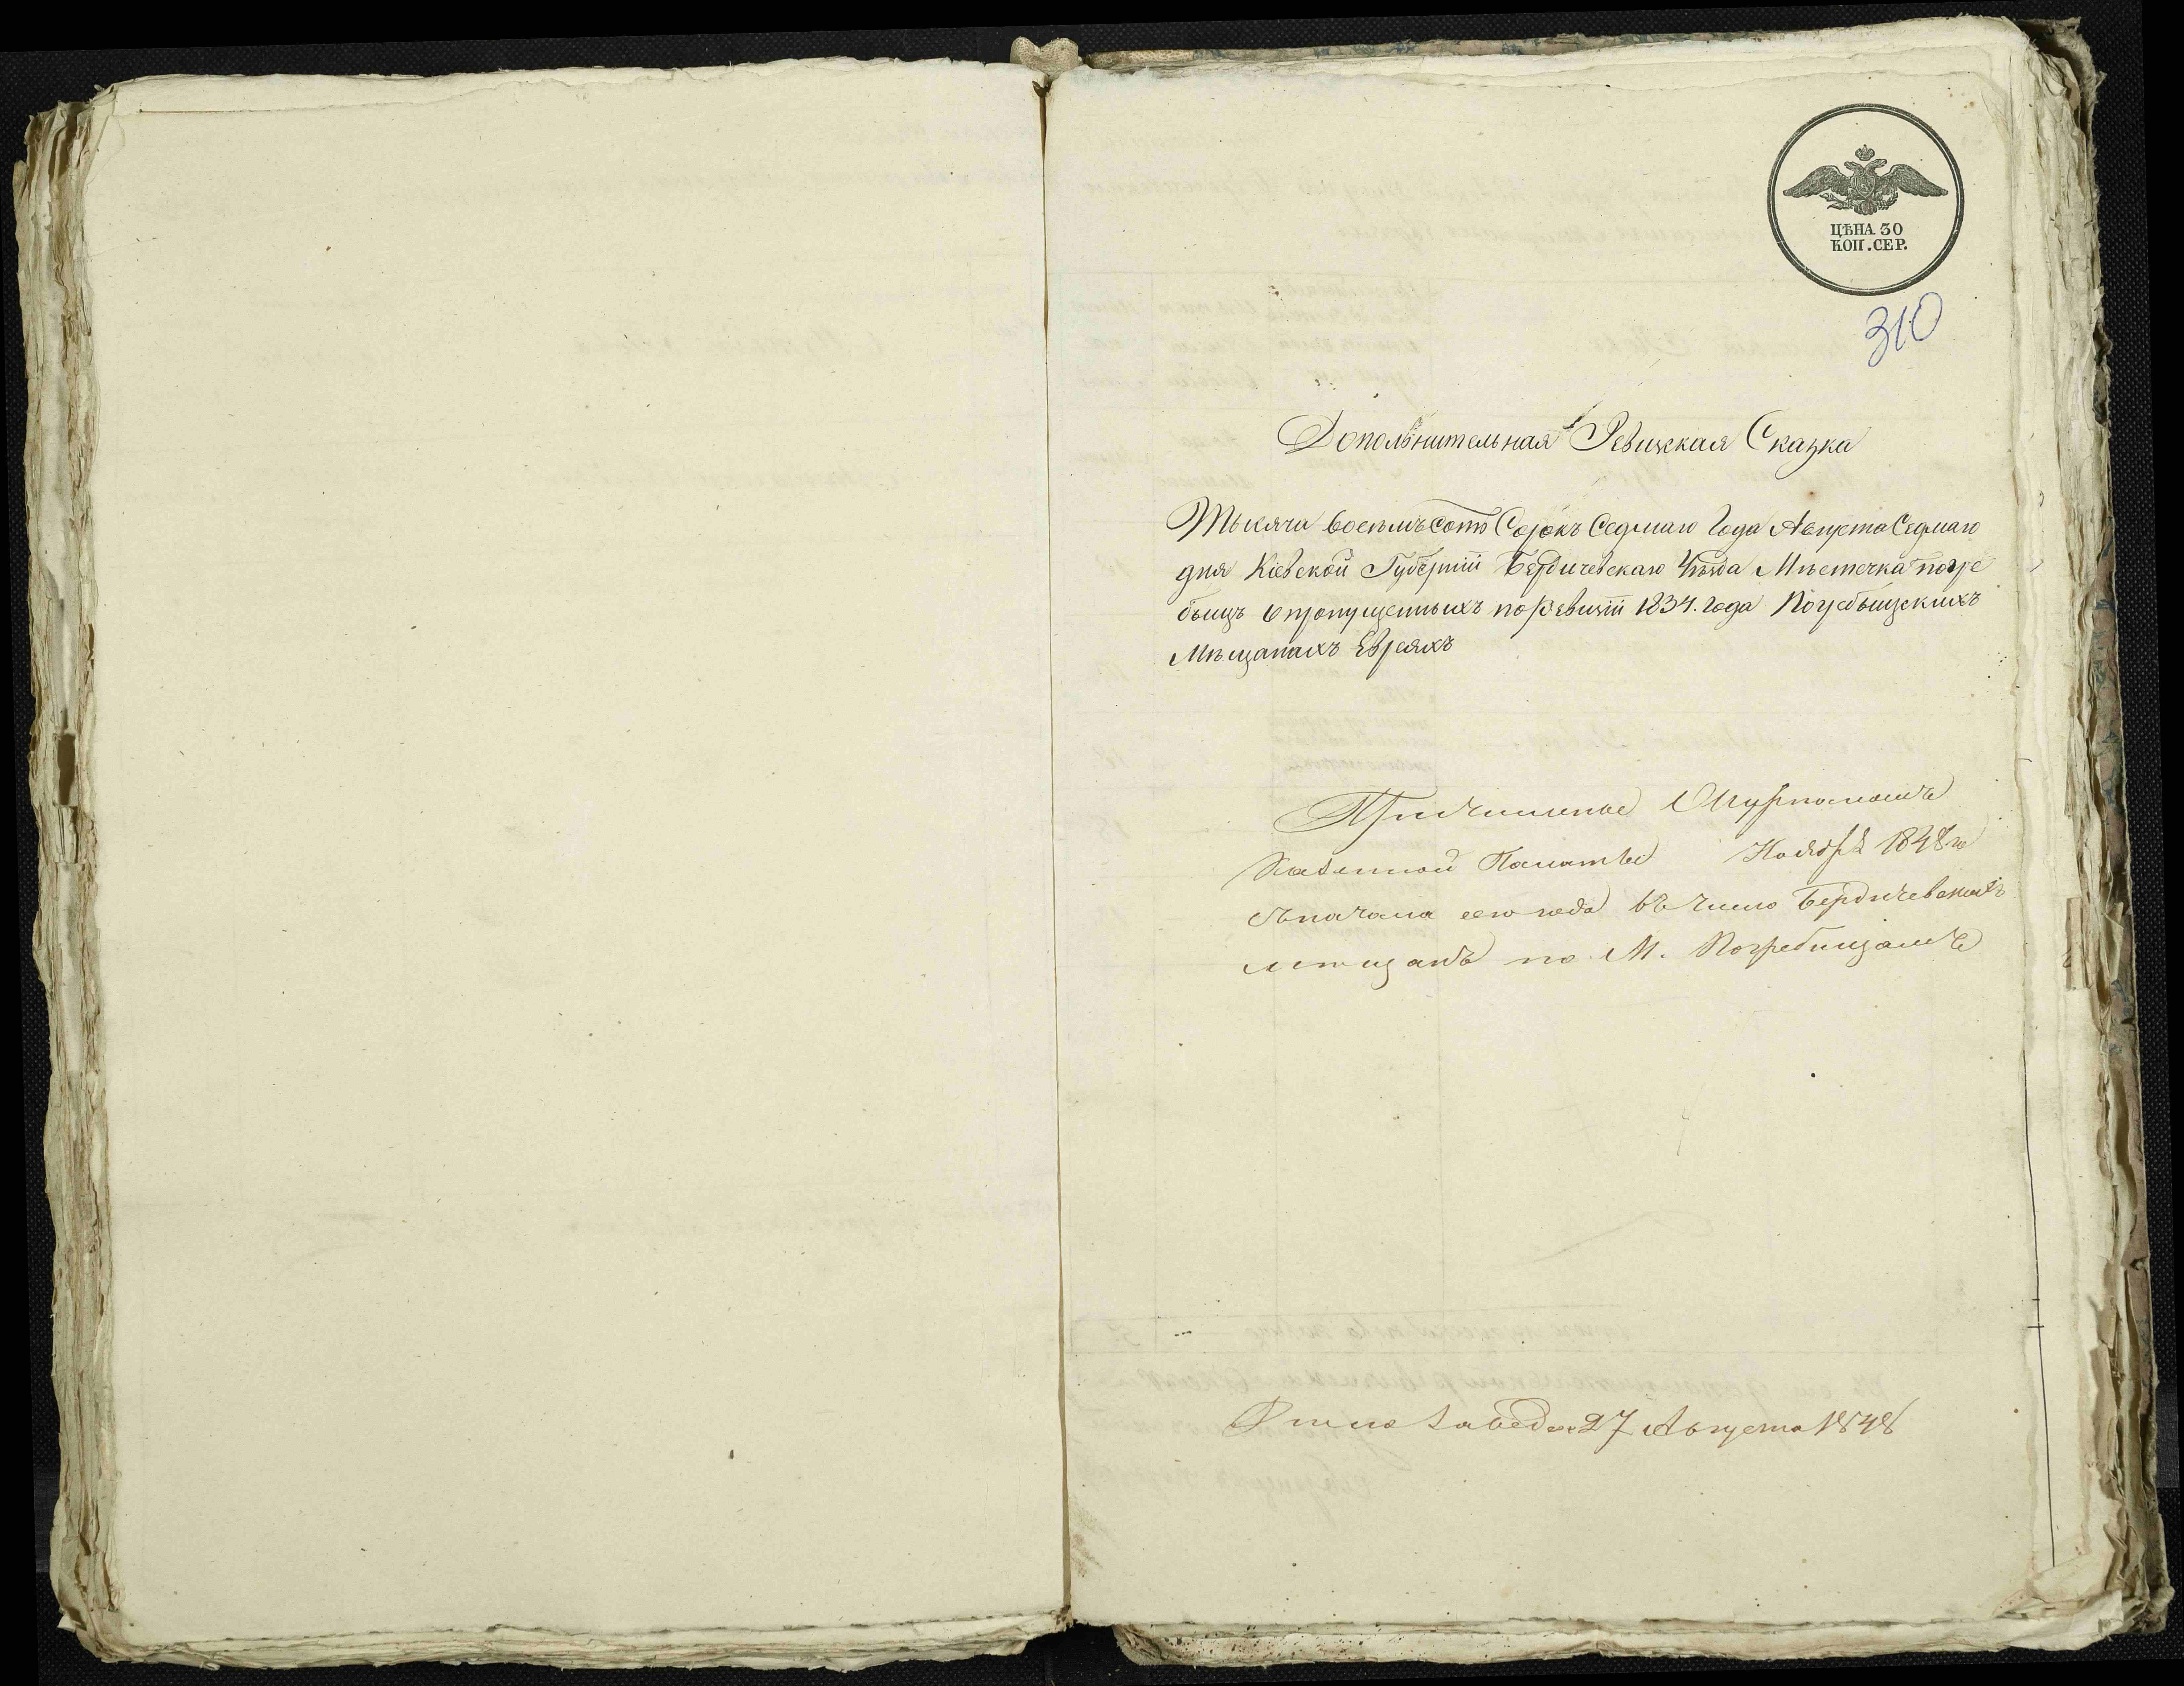 ЦѢНА 30
КОП. СЕР.
310
Дополнительная Ревижская Сказка
Тысяча восемьсотъ Сорокъ Седмаго Года Августа Седмаго
дня Кіевской Губерніи Бердичевскаго Уѣзда Мѣстечка Погре
быщъ о пропущенныхъ по ревизіи 1834. года Погребыщскихъ
Мѣщанахъ Евреяхъ
Причисленіе
Казенной Палаты Ноября 1848 го
съ начала сего года въ число Бердичевскихъ
мѣщанъ по М. Погребищамъ
27 Августа 1848